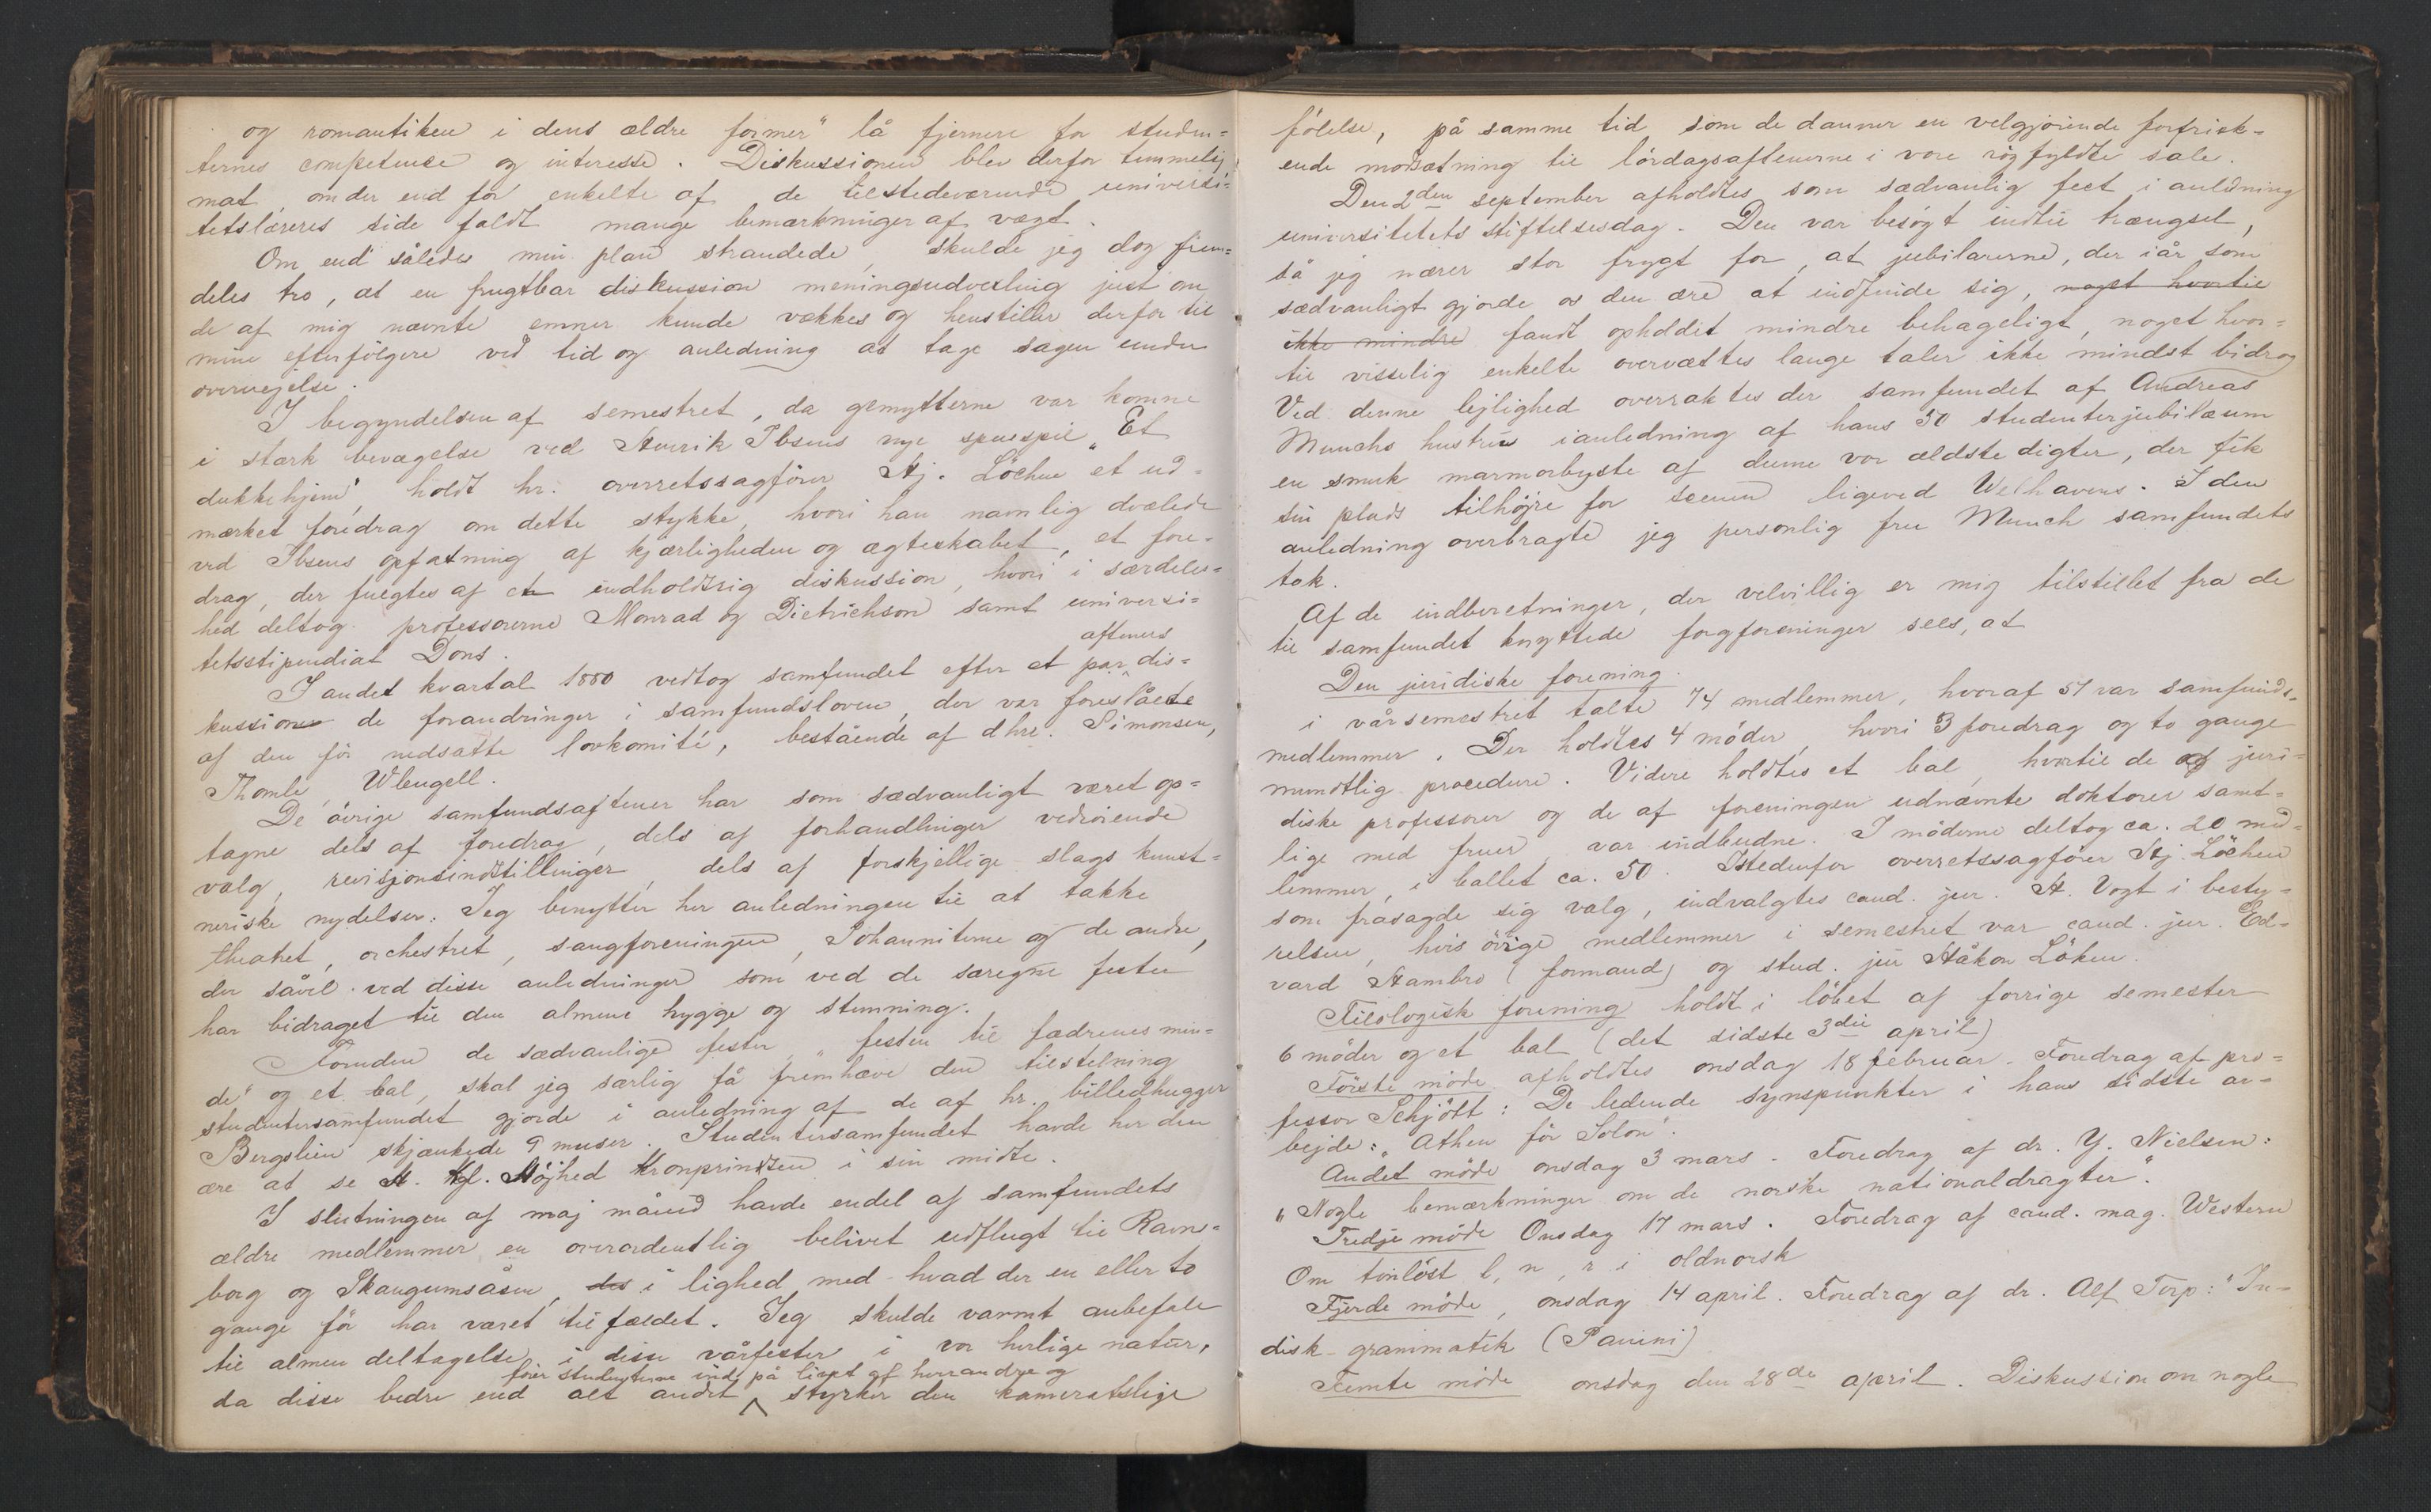 og romantiken i dens ældre former" lå fjernere for studen=
ternes competence og interesse. Diskussionen blev derfor temmelig
mat, om der end for enkelte af de tilstedeværende universi=
tetslæreres side faldt mange bemærkninger af vægt.
Om end således min plan strandede, skulde jeg dog frem=
deles tro, at en frugtbar diskussion meningsudvexling just om
de af mig nævnte emner kunde vækkes og henstiller derfor til
mine efterfölgere ved tid og anledning at tage sagen under
overvejelse.
I begyndelsen af semestret, da gemytterne var komne
i stærk bevægelse ved Henrik Ibsens nye skuespil „Et
dukkehjem" holdt hr. overretssagförer Hj. Löchen et ud=
mærket foredrag om dette stykke, hvori han navnlig dvælede
ved Ibsens opfatning af kjærligheden og ægteskabet, et fore=
drag, der fulgtes af en indholdsrig diskussion, hvori i særdeles=
hed deltog professorerne Monrad og Dietrichson samt universi=
tetsstipendiat Dons.
I andet kvartal 1880 vedtog samfundet efter et par aftenes dis=
kussion de forandringer i samfundsloven, der var foreslåede
af den för nedsatte lovkomité, bestående af dhrr. Simonsen,
Thomle, Wleugell.
De övrige samfundsaftener har som sædvanligt været op=
tagne dels af foredrag, dels af forhandlinger vedrörende
valg, revisjonsindstillinger, dels af forskjellige slags kunst=
neriske nydelser. Jeg benytter her anledningen til at takke
theatret, orchestret, sangforeningen, Johanniterne og de andre,
der såvel ved disse anledninger som ved de særegne fester
har bidraget til den almene hygge og stemning.
Foruden de sædvanlige fester, „festen til fædrenes min=
de" og et bal, skal jeg særlig få fremhæve den tilstelning
studentersamfundet gjorde i anledning af de af hr. billedhugger
Bergslien skjænkede 9 muser. Studentersamfundet havde her den
ære at se H. Kgl. Höjhed Kronprindsen i sin midte.
I slutningen af maj måned havde endel af samfundets
ældre medlemmer en overordentlig belivet udflugt til Ravns=
borg og Skaugumsåsen, i lighed med hvad der en eller to
gange för har været tilfældet. Jeg skulde varmt anbefale
til almen deltagelse i disse vårfester i vor herlige natur,
da disse bedre end alt andet förer studenterne ind på livet af hverandre og styrker den kameratslige
fölelse, på samme tid som de danner en velgjörende forfrisk=
ende modsætning til lördagsaftenerne i vore rögfyldte sale.
Den 2den september afholdtes som sædvanlig fest i anledning
universitetets stiftelsesdag. Den var besögt indtil trængsel,
så jeg nærer stor frygt for, at jubilarerne, der iår som
sædvanligt gjorde os den ære at indfinde sig, noget hvortil
ikke mindre fandt opholdet mindre behageligt, noget hvor=
til visselig enkelte overvættes lange taler ikke mindst bidrog
Ved denne lejlighed overraktes der samfundet af Andreas
Munchs hustru i anledning af hans 50 studenterjubilæum
en smuk marmorbyste af denne vor ældste digter, der fik
sin plads tilhöjre for scenen ligeved Welhavens. I den
anledning overbragte jeg personlig fru Munch samfundets
tak.
Af de indberetninger, der velvillig er mig tilstillet fra de
til samfundet knyttede fagforeninger sees, at
Den juridiske forening
i vårsemestret talte 74 medlemmer, hvoraf 57 var samfunds=
medlemmer. Der holdtes 4 möder, hvori 3 foredrag og to gange
mundtlig procedure. Videre holdtes et bal, hvortil de af juri=
diske professorer og de af foreningen udnævnte doktorer samt=
lige med fruer var indbudne. I möderne deltog ca. 20 med=
lemmer, i ballet ca. 50. Istedenfor overretssagförer Hj. Löchen
som frasagde sig valg, indvalgtes cand. jur. H. Vogt i besty=
relsen, hvis övrige medlemmer i semestret var cand. jur. Ed=
vard Hambro (formand) og stud. jur Håkon Löken.
Filologisk forening holdt i löbet af forrige semester
6 möder og et bal (det sidste 3die april)
Förste möde afholdtes onsdag 18 februar. Foredrag af pro=
fessor Schjött: De ledende synspunkter i hans sidste ar=
bejde: „Athen för Solon".
Andet möde onsdag 3 mars. Foredrag af dr. Y. Nielsen:
„Nogle bemærkninger om de norske nationaldragter".
Tredje möde Onsdag 17 mars. Foredrag af cand. mag. Western
Om tonlöst l, n, r i oldnorsk
Fjerde möde, onsdag 14 april. Foredrag af dr. Alf Torp: "In=
disk grammatik (Panini)
Femte möde onsdag den 28de april. Diskussion om nogle